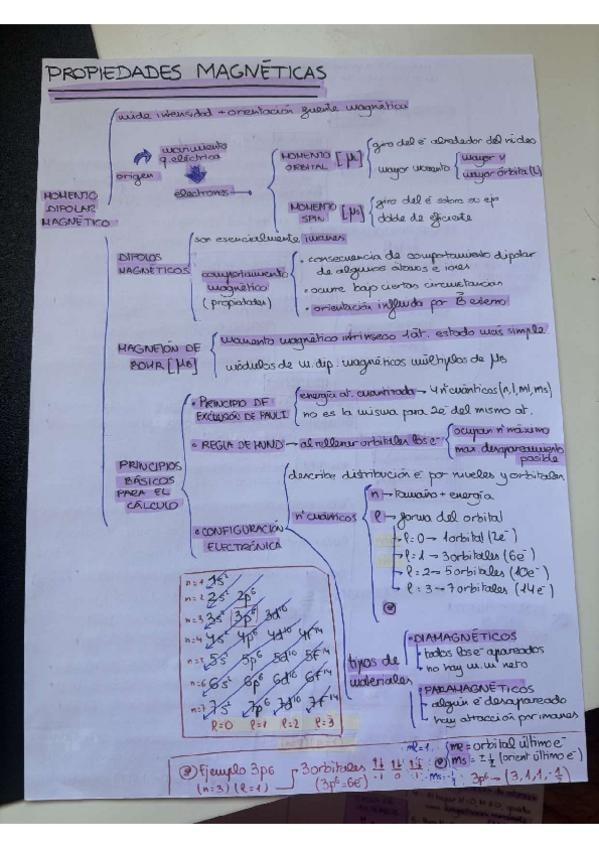 PROPIEDADES MAGNÉTICAS
mide intensidad + orientación fuente magnética
MOMENTO DIPOLAR MAGNÉTICO
origen
movimiento q eléctrica
electrones
MOMENTO ORBITAL [μL]
giro del e⁻ alrededor del núcleo
mayor momento
mayor v
mayor órbita (L)
MOMENTO SPIN [μs]
giro del e⁻ sobre su eje
doble de eficiente
DIPOLOS MAGNÉTICOS
son esencialmente imanes
comportamiento magnético (propiedades)
• consecuencia de comportamiento dipolar de algunos átomos e iones
• ocurre bajo ciertas circunstancias
• orientación influida por B externo
MAGNETÓN DE BOHR [μB]
momento magnético intrínseco 1 át. estado más simple
módulos de m. dip. magnéticos múltiplos de μB
PRINCIPIOS BÁSICOS PARA EL CÁLCULO
• PRINCIPIO DE EXCLUSIÓN DE PAULI
energía at. cuantizada → 4 nº cuánticos (n, l, ml, ms)
no es la misma para 2e⁻ del mismo at.
• REGLA DE HUND → al rellenar orbitales los e⁻
ocupan nº máximo
max desapareamiento posible
• CONFIGURACIÓN ELECTRÓNICA
describe distribución e⁻ por niveles y orbitales
nº cuánticos
n → tamaño + energía
l → forma del orbital
l=0 → 1 orbital (2e⁻)
l=1 → 3 orbitales (6e⁻)
l=2 → 5 orbitales (10e⁻)
l=3 → 7 orbitales (14e⁻)
n=1 1s²
n=2 2s² 2p⁶
n=3 3s² 3p⁶ 3d¹⁰
n=4 4s² 4p⁶ 4d¹⁰ 4f¹⁴
n=5 5s² 5p⁶ 5d¹⁰ 5f¹⁴
n=6 6s² 6p⁶ 6d¹⁰ 6f¹⁴
n=7 7s² 7p⁶ 7d¹⁰ 7f¹⁴
l=0 l=1 l=2 l=3
tipos de materiales
• DIAMAGNÉTICOS
todos los e⁻ apareados
no hay m.m neto
• PARAMAGNÉTICOS
algún e⁻ desapareado
hay atracción por imanes
Ejemplo 3p6 (n=3) (l=1)
3 orbitales (3p⁶=6e⁻)
↑↓ ↑↓ ↑↓
-1 0 1
ml=1
ml = orbital último e⁻
ms = ±½ (orient último e⁻)
3p⁶ → (3,1,1,-½)